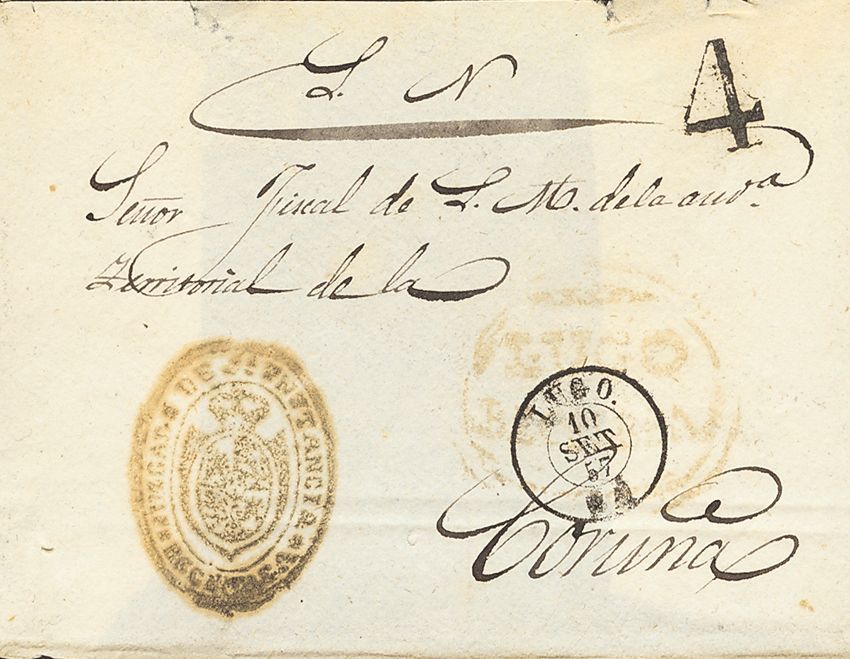 S. N
4
Señor Fiscal de S. M. de la aud.ª
Territorial de la
LUGO
JUZGADO DE 1ª INSTANCIA
LUGO.
10
SET
57
Coruña